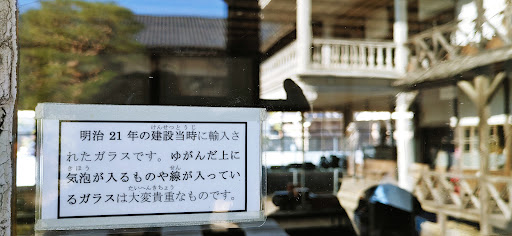 明治 21 年の建設当時に輸入さ
れたガラスです。ゆがんだ上に
気泡が入るものや線が入ってい
るガラスは大変貴重なものです。